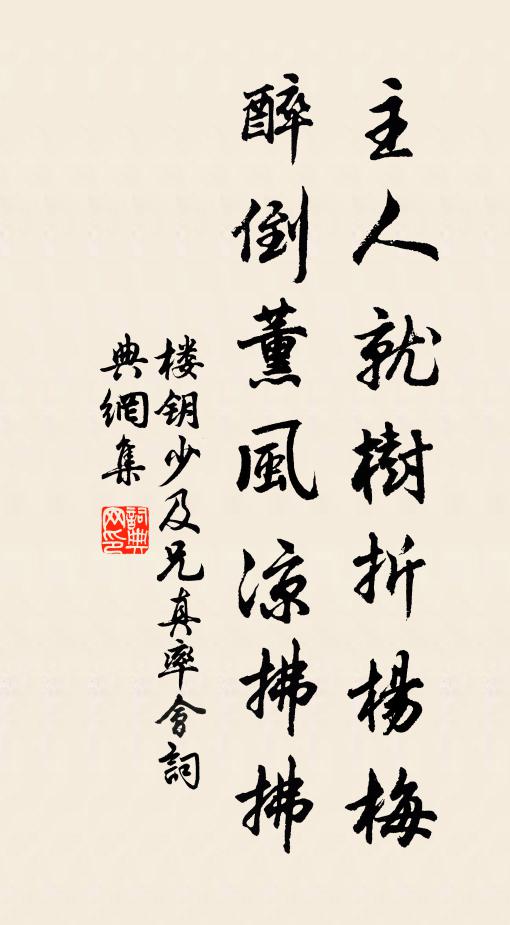 主人就樹折楊梅
醉倒薰風涼拂拂
楼钥少及兄真率會詞
典網集
詞典网印